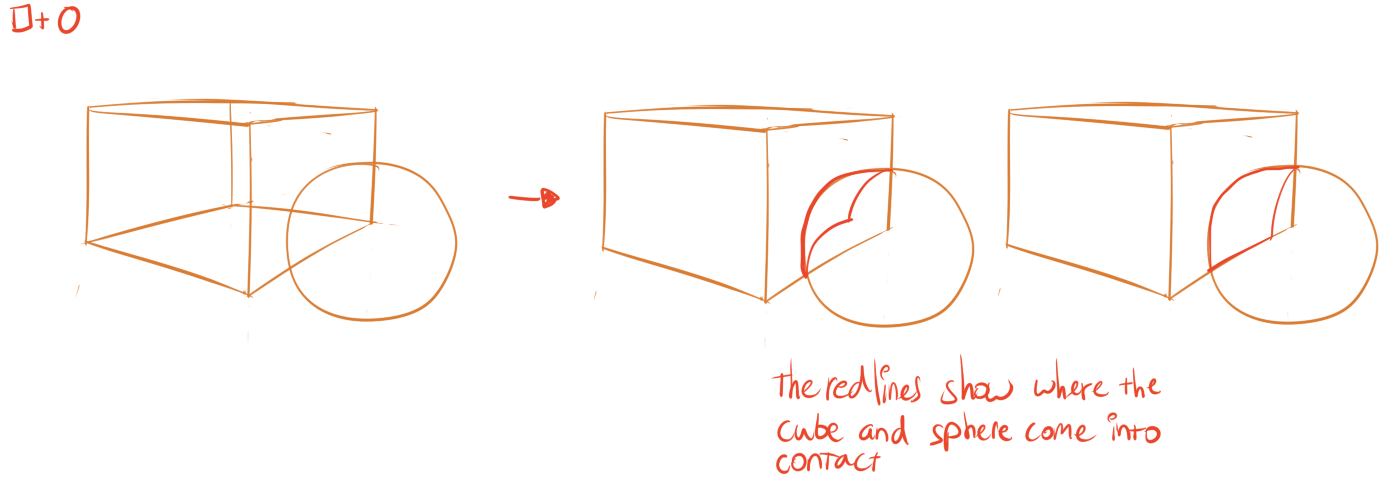 □+O
the red lines show where the
cube and sphere come into
contact